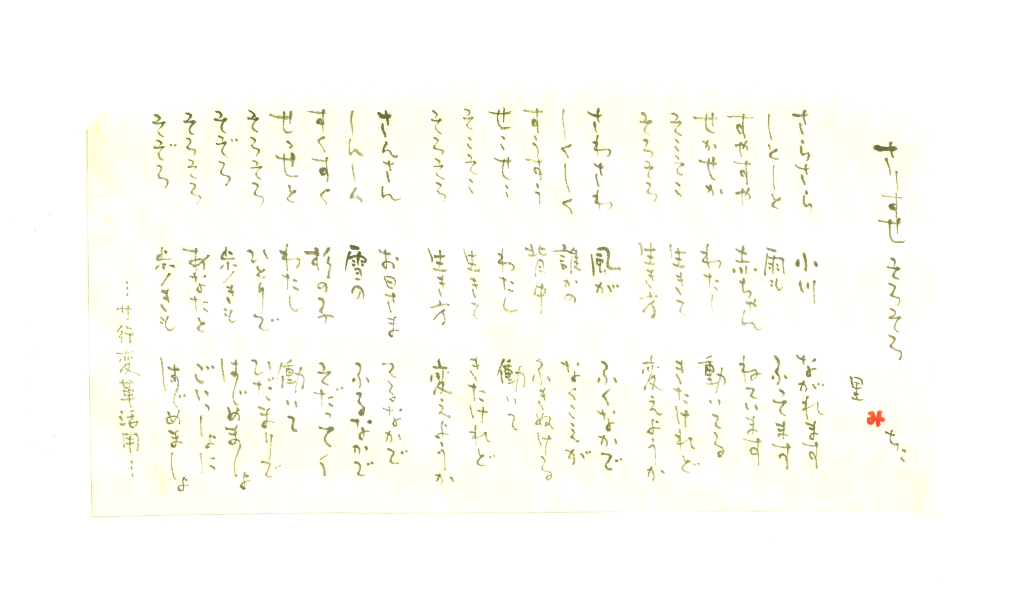 さしすせ そろそろ
里 み ち
さらさら 小川 ながれます
しとしと 雨も ふってます
すやすや 赤ちゃん ねています
せかせか わたし 動いてる
そこそこ 生きて きたけれど
そろそろ 生き方 変えようか
さわさわ 風が ふくなかで
しくしく 誰かの なくこえが
すうすう 背中 ふきぬける
せこせこ わたし 働いて
そこそこ 生きて きたけれど
そろそろ 生き方 変えようか
さんさん お日さま てるなかで
しんしん 雪の ふるなかで
すくすく 杉の子 そだってく
せっせと わたし 働いて
そろそろ ひとりで ひだまりで
そぞろ 歩きも はじめましょ
そろそろ あなたと ごいっしょに
そぞろ 歩きも はじめましょ
…サ行変革活用…